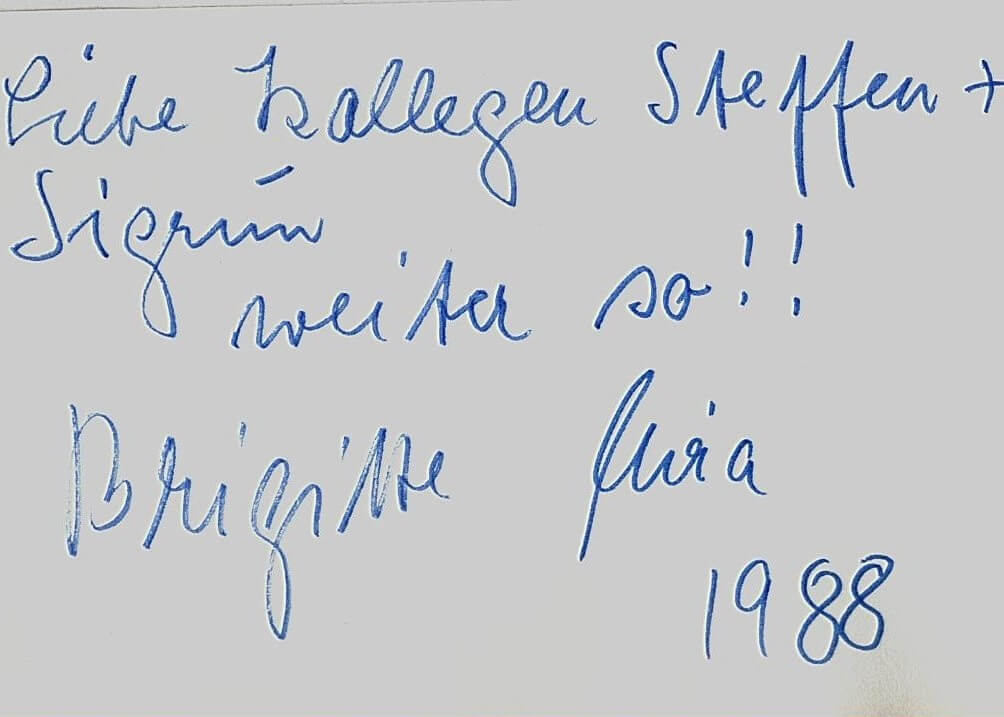 Liebe Kollegen Steffen +
Sigrun
weiter so!!
Brigitte Mira
1988